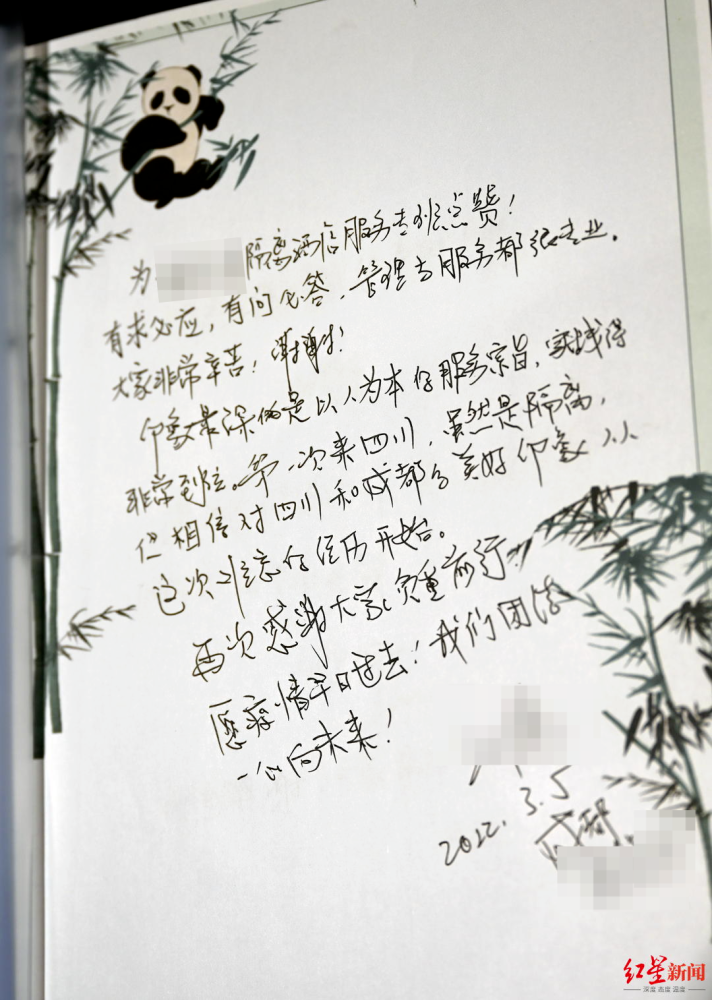 为 隔离酒店服务专班点赞！
有求必应，有问必答，管理与服务都很专业。
大家非常辛苦！谢谢！
印象最深的是以人为本的服务宗旨，实践得
非常到位。第一次来四川，虽然是隔离，
但相信对四川和成都的美好印象从
这次 的经历开始。
再次感谢大家负重前行
愿疫情早日过去！我们团结
一心向未来！
2022.3.5
成都
红星新闻
深度 态度 温度